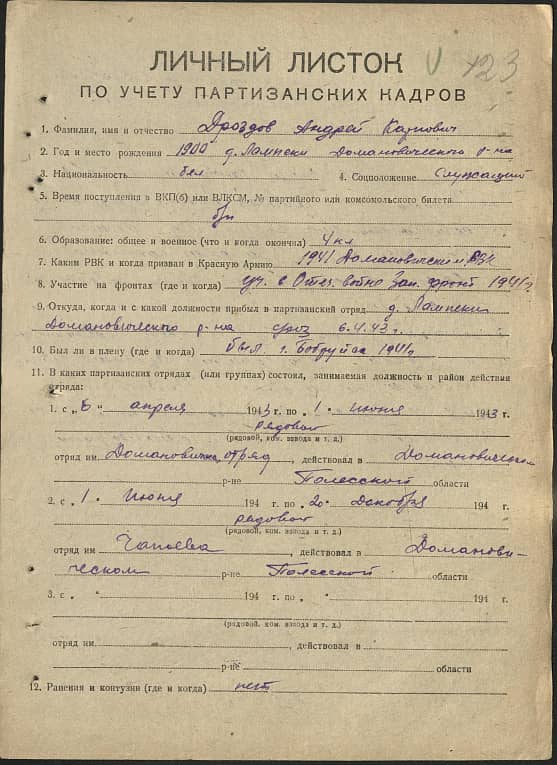 ЛИЧНЫЙ ЛИСТОК
ПО УЧЕТУ ПАРТИЗАНСКИХ КАДРОВ
423
1. Фамилия, имя и отчество Дроздов Андрей
2. Год и место рождения 1900 д. Лампеки Домановического р-на
3. Национальность бел 4. Соцположение служащий
5. Время поступления в ВКП(б) или ВЛКСМ, № партийного или комсомольского билета
б/п
6. Образование: общее и военное (что и когда окончил) 4 кл
7. Каким РВК и когда призван в Красную Армию 1941 Домановичским РВК
8. Участие на фронтах (где и когда) уч. в Отеч. войне Зап. фронт 1941 г
9. Откуда, когда и с какой должности прибыл в партизанский отряд д. Лампеки
Домановического р-на 6.4.43 г.
10. Был ли в плену (где и когда) был г. Бобруйск 1941 г
11. В каких партизанских отрядах (или группах) состоял, занимаемая должность и район действия
отряда:
1. с „6" апреля 1943 г. по „1" июня 1943 г.
рядовой
(рядовой, ком. взвода и т. д.)
отряд им отряд, действовал в Домановическом
р-не Полесской области
2. с „1" июня 194 г. по „20" декабря 194 г.
рядовой
(рядовой, ком. взвода и т. д.)
отряд им Чапаева, действовал в Доманови-
ческом р-не Полесской области
3. с „ " 194 г. по „ " 194 г.
(рядовой, ком. взвода и т. д.)
отряд им., действовал в
р-не области
12. Ранения и контузии (где и когда) нет